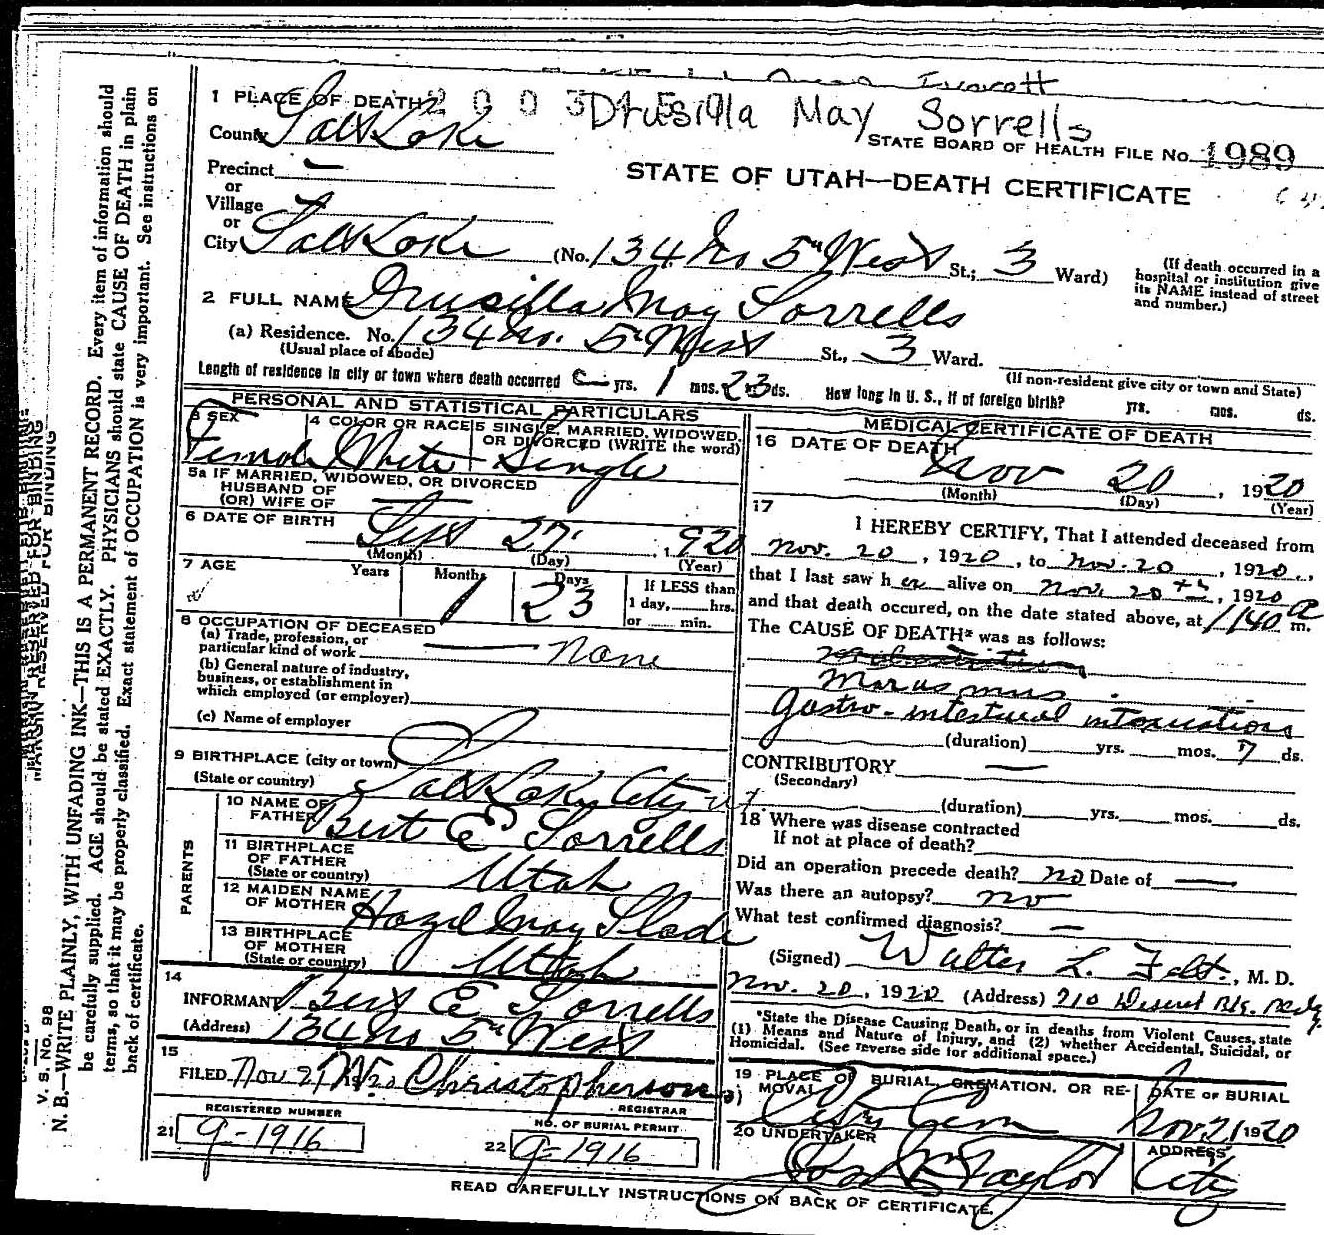 1 PLACE OF DEATH 2003 Drusilla May Sorrells
County Salt Lake
STATE BOARD OF HEALTH FILE No. 1989
Precinct —
or
Village
or
City Salt Lake (No. 134 No 5th West St.; 3 Ward)
STATE OF UTAH—DEATH CERTIFICATE
(If death occurred in a hospital or institution give its NAME instead of street and number.)
2 FULL NAME Drusilla May Sorrells
(a) Residence. No. 134 No. 5th West St., 3 Ward.
(Usual place of abode)
(If non-resident give city or town and State)
Length of residence in city or town where death occurred — yrs. 1 mos. 23 ds. How long in U. S., if of foreign birth? yrs. mos. ds.
PERSONAL AND STATISTICAL PARTICULARS
3 SEX Female
4 COLOR OR RACE White
5 SINGLE, MARRIED, WIDOWED, OR DIVORCED (WRITE the word) Single
5a IF MARRIED, WIDOWED, OR DIVORCED
HUSBAND OF
(OR) WIFE OF —
6 DATE OF BIRTH Sept 27 1920
(Month) (Day) (Year)
7 AGE Years Months 1 Days 23 If LESS than 1 day, hrs. or min.
8 OCCUPATION OF DECEASED
(a) Trade, profession, or
particular kind of work — None
(b) General nature of industry,
business, or establishment in
which employed (or employer)
(c) Name of employer
9 BIRTHPLACE (city or town)
(State or country) Salt Lake City Ut.
PARENTS
10 NAME OF FATHER Bert E Sorrells
11 BIRTHPLACE OF FATHER
(State or country) Utah
12 MAIDEN NAME OF MOTHER Hazel May Slade
13 BIRTHPLACE OF MOTHER
(State or country) Utah
14
INFORMANT Bert E Sorrells
(Address) 134 No 5th West
15
FILED Nov 21 1920 W. Christopherson
REGISTRAR
REGISTERED NUMBER
21 g-1916
NO. OF BURIAL PERMIT
22 g-1916
MEDICAL CERTIFICATE OF DEATH
16 DATE OF DEATH
Nov 20, 1920
(Month) (Day) (Year)
17
I HEREBY CERTIFY, That I attended deceased from
Nov. 20, 1920, to Nov. 20, 1920,
that I last saw her alive on Nov. 20th, 1920
and that death occured, on the date stated above, at 1140 a m.
The CAUSE OF DEATH* was as follows:
Marasmus
Gastro-intestinal intoxications
(duration) yrs. mos. 7 ds.
CONTRIBUTORY —
(Secondary)
(duration) yrs. mos. ds.
18 Where was disease contracted
If not at place of death?
Did an operation precede death? no Date of —
Was there an autopsy? no
What test confirmed diagnosis? —
(Signed) Walter L. Felt, M. D.
Nov. 20, 1920 (Address) 710 Deseret
*State the Disease Causing Death, or in deaths from Violent Causes, state
(1) Means and Nature of Injury, and (2) whether Accidental, Suicidal, or
Homicidal. (See reverse side for additional space.)
19 PLACE OF BURIAL, CREMATION, OR REMOVAL City Cem
DATE OF BURIAL Nov 21 1920
20 UNDERTAKER Taylor
ADDRESS City
READ CAREFULLY INSTRUCTIONS ON BACK OF CERTIFICATE.
MARGIN RESERVED FOR BINDING
V. S. No. 98
N. B.—WRITE PLAINLY, WITH UNFADING INK—THIS IS A PERMANENT RECORD. Every item of information should
be carefully supplied. AGE should be stated EXACTLY. PHYSICIANS should state CAUSE OF DEATH in plain
terms, so that it may be properly classified. Exact statement of OCCUPATION is very important. See instructions on
back of certificate.